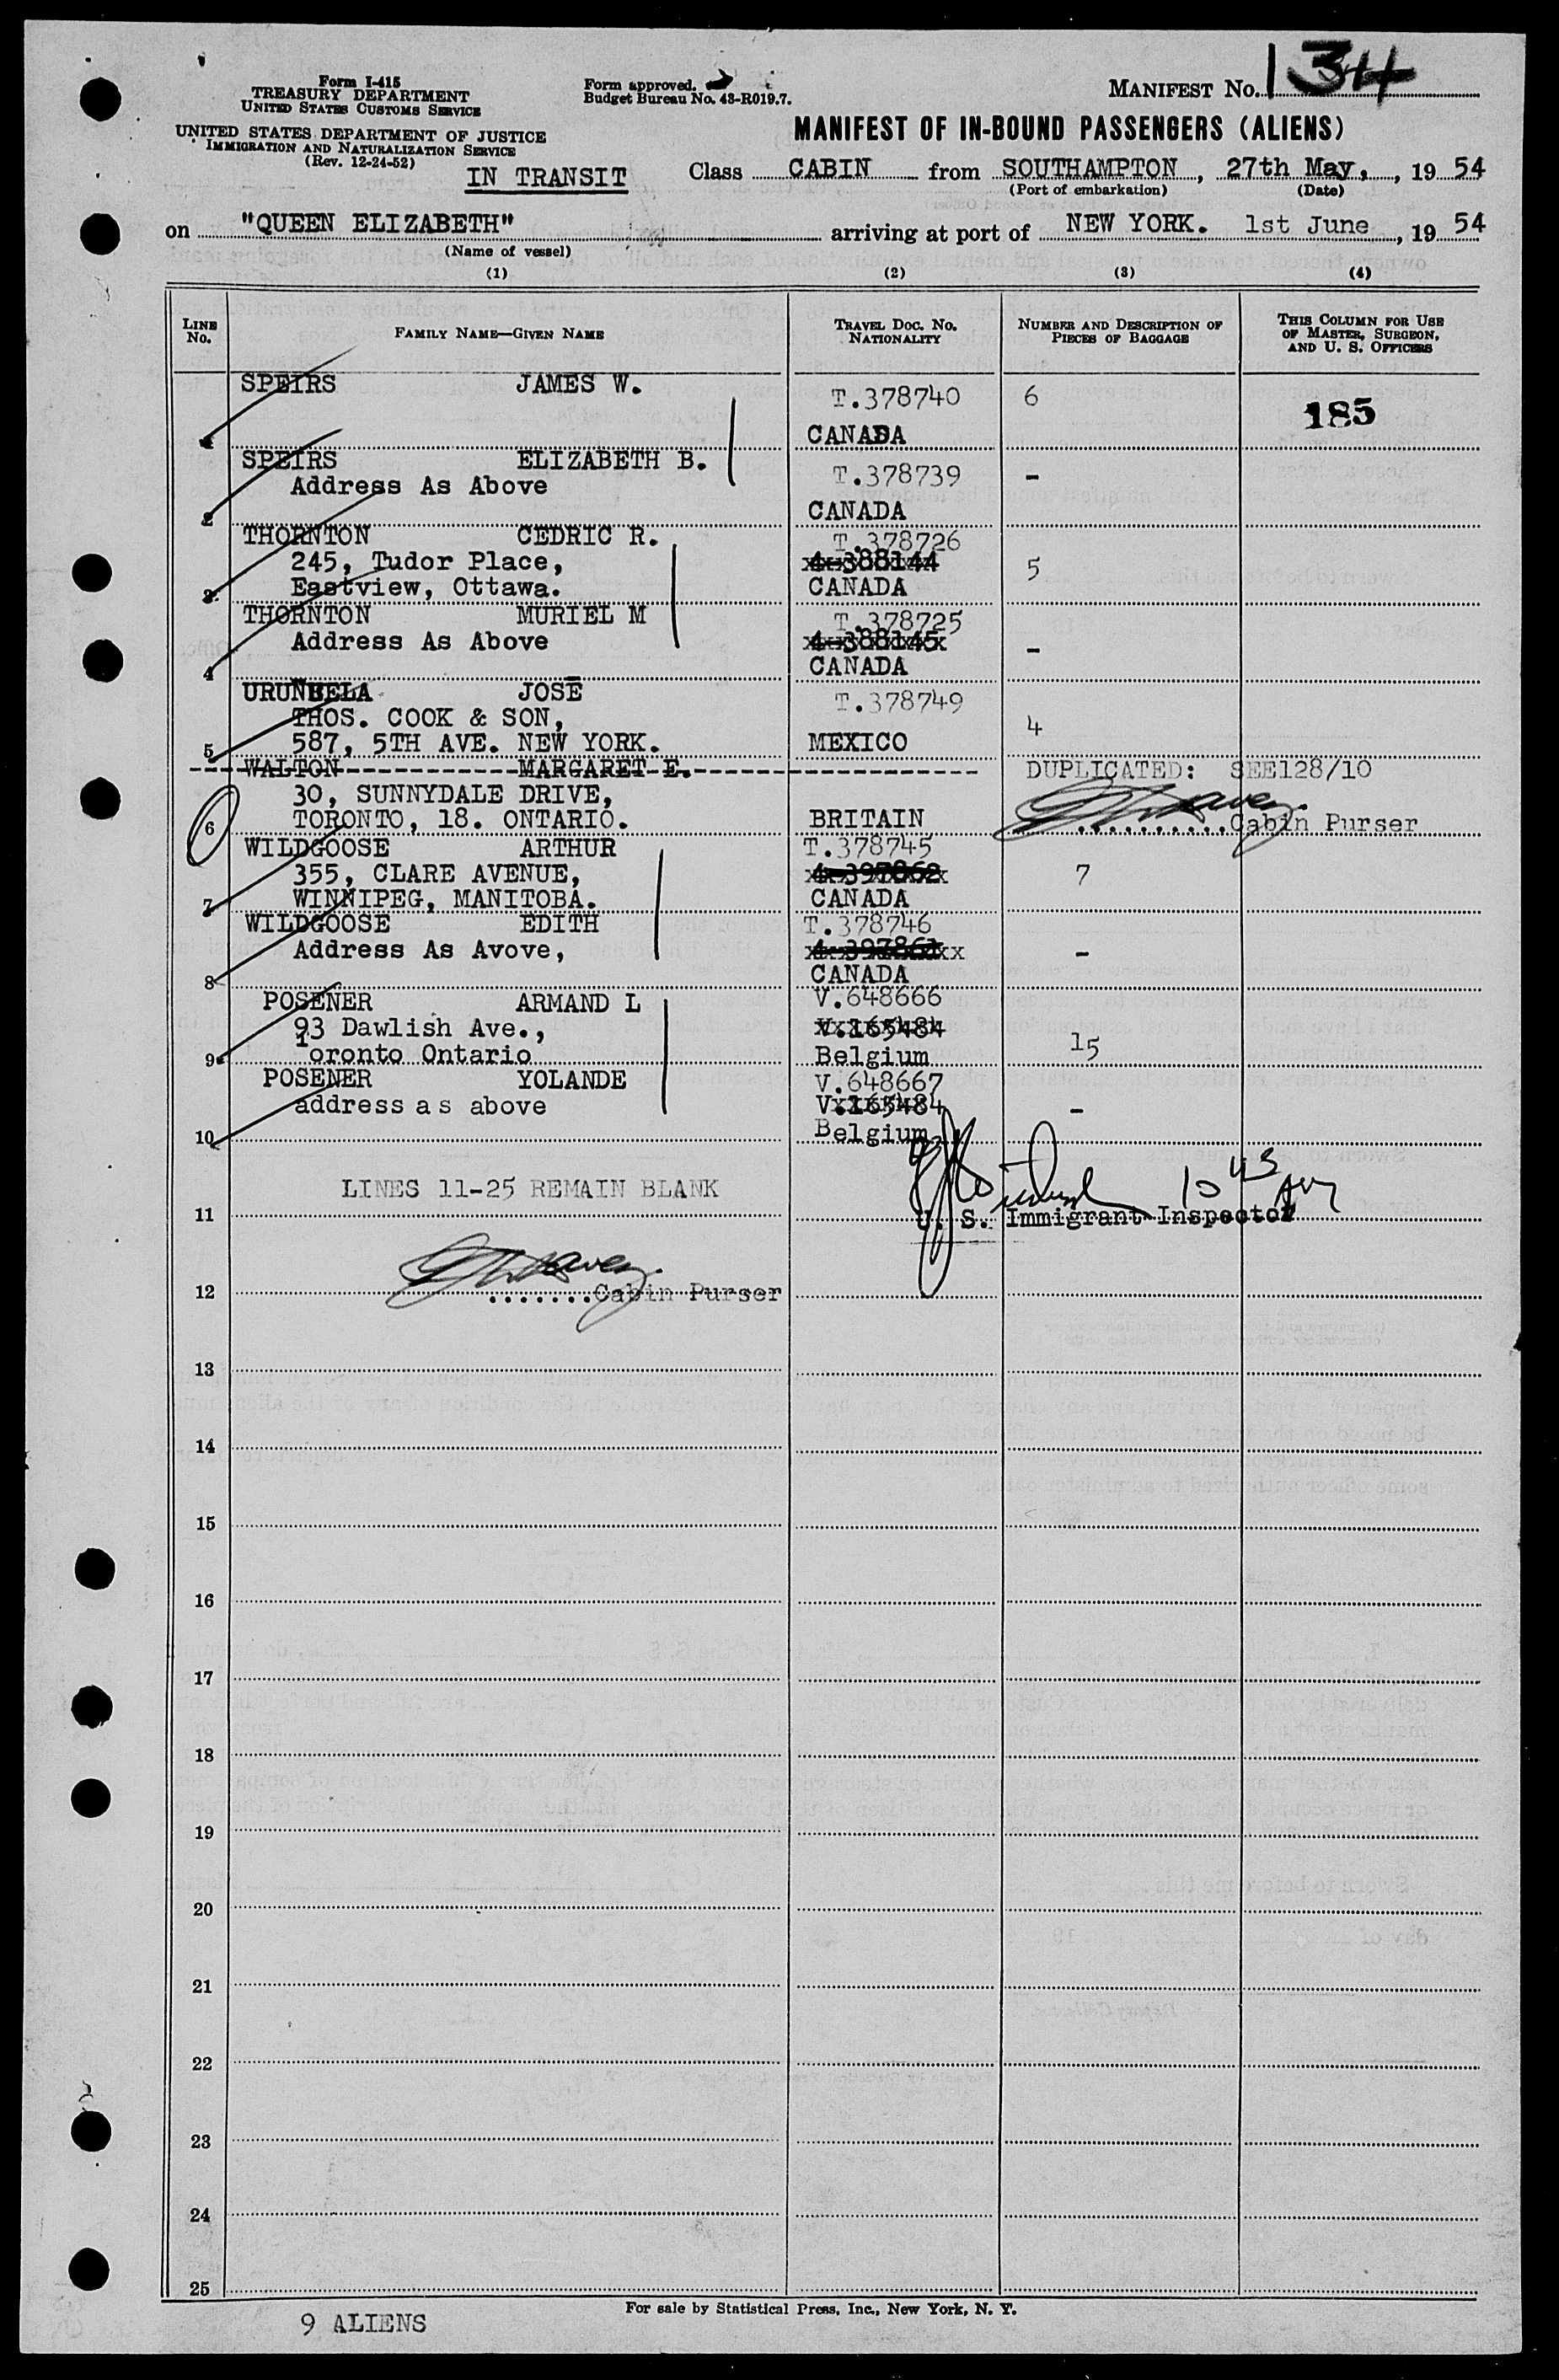 Form I-415
TREASURY DEPARTMENT
UNITED STATES CUSTOMS SERVICE
UNITED STATES DEPARTMENT OF JUSTICE
IMMIGRATION AND NATURALIZATION SERVICE
(Rev. 12-24-52)
Form approved.
Budget Bureau No. 43-R019.7.
MANIFEST No. 134
MANIFEST OF IN-BOUND PASSENGERS (ALIENS)
IN TRANSIT Class CABIN from SOUTHAMPTON, 27th May, 1954
(Port of embarkation) (Date)
on "QUEEN ELIZABETH" arriving at port of NEW YORK. 1st June, 1954
(Name of vessel)
(1) (2) (3) (4)
LINE No. FAMILY NAME—GIVEN NAME TRAVEL DOC. No. NATIONALITY NUMBER AND DESCRIPTION OF PIECES OF BAGGAGE THIS COLUMN FOR USE OF MASTER, SURGEON, AND U. S. OFFICERS
SPEIRS JAMES W. T.378740 6 185
1 CANADA
SPEIRS ELIZABETH B. T.378739 -
Address As Above
2 CANADA
THORNTON CEDRIC R. T.378726
245, Tudor Place, 4-388144 5
3 Eastview, Ottawa. CANADA
THORNTON MURIEL M T.378725
Address As Above 4-388145 -
4 CANADA
URUNUELA JOSE T.378749
THOS. COOK & SON, 4
5 587, 5TH AVE. NEW YORK. MEXICO
WALTON MARGARET E. DUPLICATED: SEE128/10
30, SUNNYDALE DRIVE,
6 TORONTO, 18. ONTARIO. BRITAIN Cabin Purser
WILDGOOSE ARTHUR T.378745
355, CLARE AVENUE, 4-397862 7
7 WINNIPEG, MANITOBA. CANADA
WILDGOOSE EDITH T.378746
Address As Avove, 4-397861 -
8 CANADA
POSENER ARMAND L V.648666
93 Dawlish Ave., V.165484
9 Toronto Ontario Belgium 15
POSENER YOLANDE V.648667
address as above V.165484 -
10 Belgium
LINES 11-25 REMAIN BLANK 10 45 AM
11 U. S. Immigrant Inspector
12 Cabin Purser
13
14
15
16
17
18
19
20
21
22
23
24
25
For sale by Statistical Press, Inc., New York, N. Y.
9 ALIENS